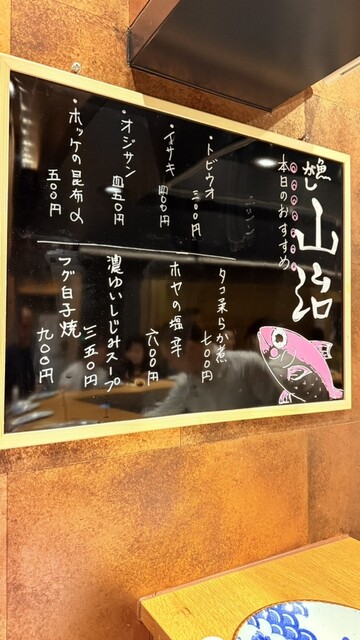 魚がし
山治
本日のおすすめ
・トビウオ
三〇〇円
・イサキ
四〇〇円
・オジサン
四五〇円
・ホッケの昆布〆
五〇〇円
タコ柔らか煮
七〇〇円
ホヤの塩辛
六〇〇円
濃ゆいしじみスープ
三五〇円
フグ白子焼
九〇〇円